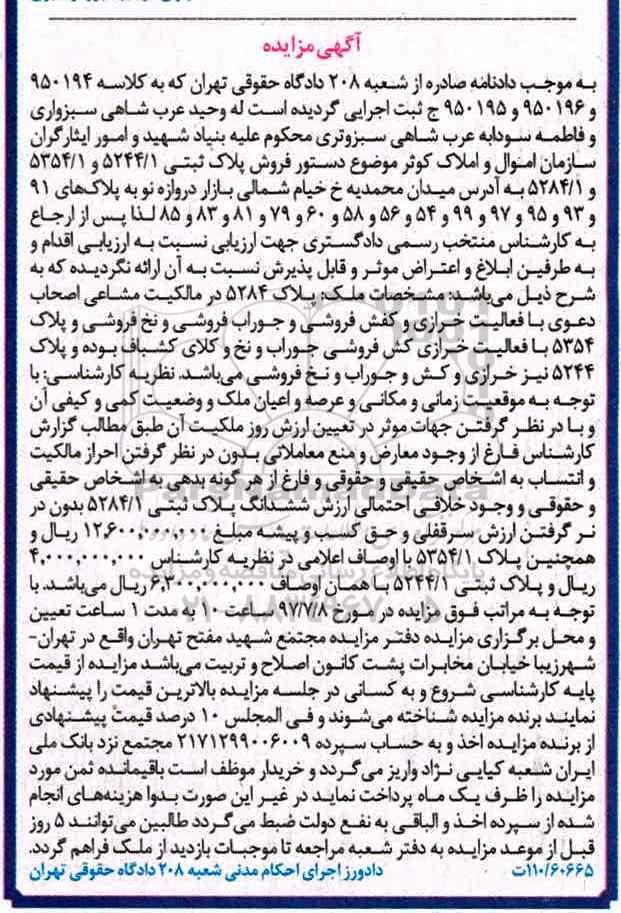 آگهی مزایده
به موجب دادنامه صادره از شعبه ۲۰۸ دادگاه حقوقی تهران که به کلاسه ۹۵۰۱۹۴
و ۹۵۰۱۹۶ و ۹۵۰۱۹۵ ج ثبت اجرایی گردیده است له وحید عرب شاهی سبزواری
و فاطمه سودابه عرب شاهی سبزوتری محکوم علیه بنیاد شهید و امور ایثارگران
سازمان اموال و املاک کوثر موضوع دستور فروش پلاک ثبتی ۵۲۴۴/۱ و ۵۳۵۴/۱
و ۵۲۸۴/۱ به آدرس میدان محمدیه خ خیام شمالی بازار دروازه نو به پلاک‌های ۹۱
و ۹۳ و ۹۵ و ۹۷ و ۹۹ و ۵۴ و ۵۶ و ۵۸ و ۶۰ و ۷۹ و ۸۱ و ۸۳ و ۸۵ لذا پس از ارجاع
به کارشناس منتخب رسمی دادگستری جهت ارزیابی نسبت به ارزیابی اقدام و
به طرفین ابلاغ و اعتراض موثر و قابل پذیرش نسبت به آن ارائه نگردیده که به
شرح ذیل می‌باشد: مشخصات ملک: پلاک ۵۲۸۴ در مالکیت مشاعی اصحاب
دعوی با فعالیت خرازی و کفش فروشی و جوراب فروشی و نخ فروشی و پلاک
۵۳۵۴ با فعالیت خرازی کش فروشی جوراب و نخ و کلای کشباف بوده و پلاک
۵۲۴۴ نیز خرازی و کش و جوراب و نخ فروشی می‌باشد. نظریه کارشناسی: با
توجه به موقعیت زمانی و مکانی و عرصه و اعیان ملک و وضعیت کمی و کیفی آن
و با در نظر گرفتن جهات موثر در تعیین ارزش روز ملکیت آن طبق مطالب گزارش
کارشناس فارغ از وجود معارض و منع معاملاتی بدون در نظر گرفتن احراز مالکیت
و انتساب به اشخاص حقیقی و حقوقی و فارغ از هر گونه بدهی به اشخاص حقیقی
و حقوقی و وجود خلافی احتمالی ارزش ششدانگ پلاک ثبتی ۵۲۸۴/۱ بدون در
نر گرفتن ارزش سرقفلی و حق کسب و پیشه مبلغ ۱۲,۶۰۰,۰۰۰,۰۰۰ ریال و
همچنین پلاک ۵۳۵۴/۱ با اوصاف اعلامی در نظریه کارشناس ۴,۰۰۰,۰۰۰,۰۰۰
ریال و پلاک ثبتی ۵۲۴۴/۱ با همان اوصاف ۶,۲۰۰,۰۰۰,۰۰۰ ریال می‌باشد. با
توجه به مراتب فوق مزایده در مورخ ۹۷/۷/۸ ساعت ۱۰ به مدت ۱ ساعت تعیین
و محل برگزاری مزایده دفتر مزایده مجتمع شهید مفتح تهران واقع در تهران-
شهرزیبا خیابان مخابرات پشت کانون اصلاح و تربیت می‌باشد مزایده از قیمت
پایه کارشناسی شروع و به کسانی در جلسه مزایده بالاترین قیمت را پیشنهاد
نمایند برنده مزایده شناخته می‌شوند و فی المجلس ۱۰ درصد قیمت پیشنهادی
از برنده مزایده اخذ و به حساب سپرده ۲۱۷۱۲۹۹۰۰۶۰۰۹ مجتمع نزد بانک ملی
ایران شعبه کیایی نژاد واریز می‌گردد و خریدار موظف است باقیمانده ثمن مورد
مزایده را ظرف یک ماه پرداخت نماید در غیر این صورت بدوا هزینه‌های انجام
شده از سپرده اخذ و الباقی به نفع دولت ضبط می‌گردد طالبین می‌توانند ۵ روز
قبل از موعد مزایده به دفتر شعبه مراجعه تا موجبات بازدید از ملک فراهم گردد.
۱۱۰/۶۰۶۶۵ت دادورز اجرای احکام مدنی شعبه ۲۰۸ دادگاه حقوقی تهران